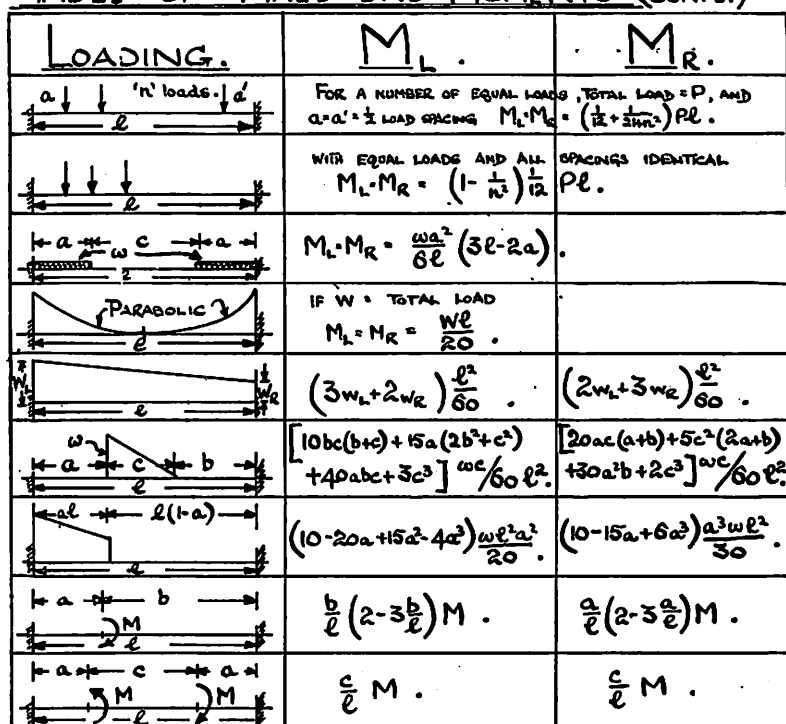 (CONT'D.)
LOADING. M_L. M_R.
a 'n' loads. a'
l
FOR A NUMBER OF EQUAL LOADS, TOTAL LOAD = P, AND
a=a'=½ LOAD SPACING M_L=M_R = (1/12 + 1/24n²) Pl.
l
WITH EQUAL LOADS AND ALL SPACINGS IDENTICAL
M_L=M_R = (1 - 1/n²) 1/12 Pl.
a c a
ω
M_L=M_R = ωa²/6l (3l-2a).
PARABOLIC
l
IF W = TOTAL LOAD
M_L = M_R = Wl/20.
W_R
l
(3w_L+2w_R) l²/60. (2w_L+3w_R) l²/60.
ω
a c b
l
[10bc(b+c) + 15a(2b²+c²) [20ac(a+b)+5c²(2a+b)
+40abc+3c³] ωc/60l². +30a²b+2c³] ωc/60l².
al l(1-a)
l
(10-20a+15a²-4a³) ωl²a²/20. (10-15a+6a²) a³ωl²/30.
a b
M
l
b/l (2-3b/l) M. a/l (2-3a/l) M.
a c a
M M
l
c/l M. c/l M.